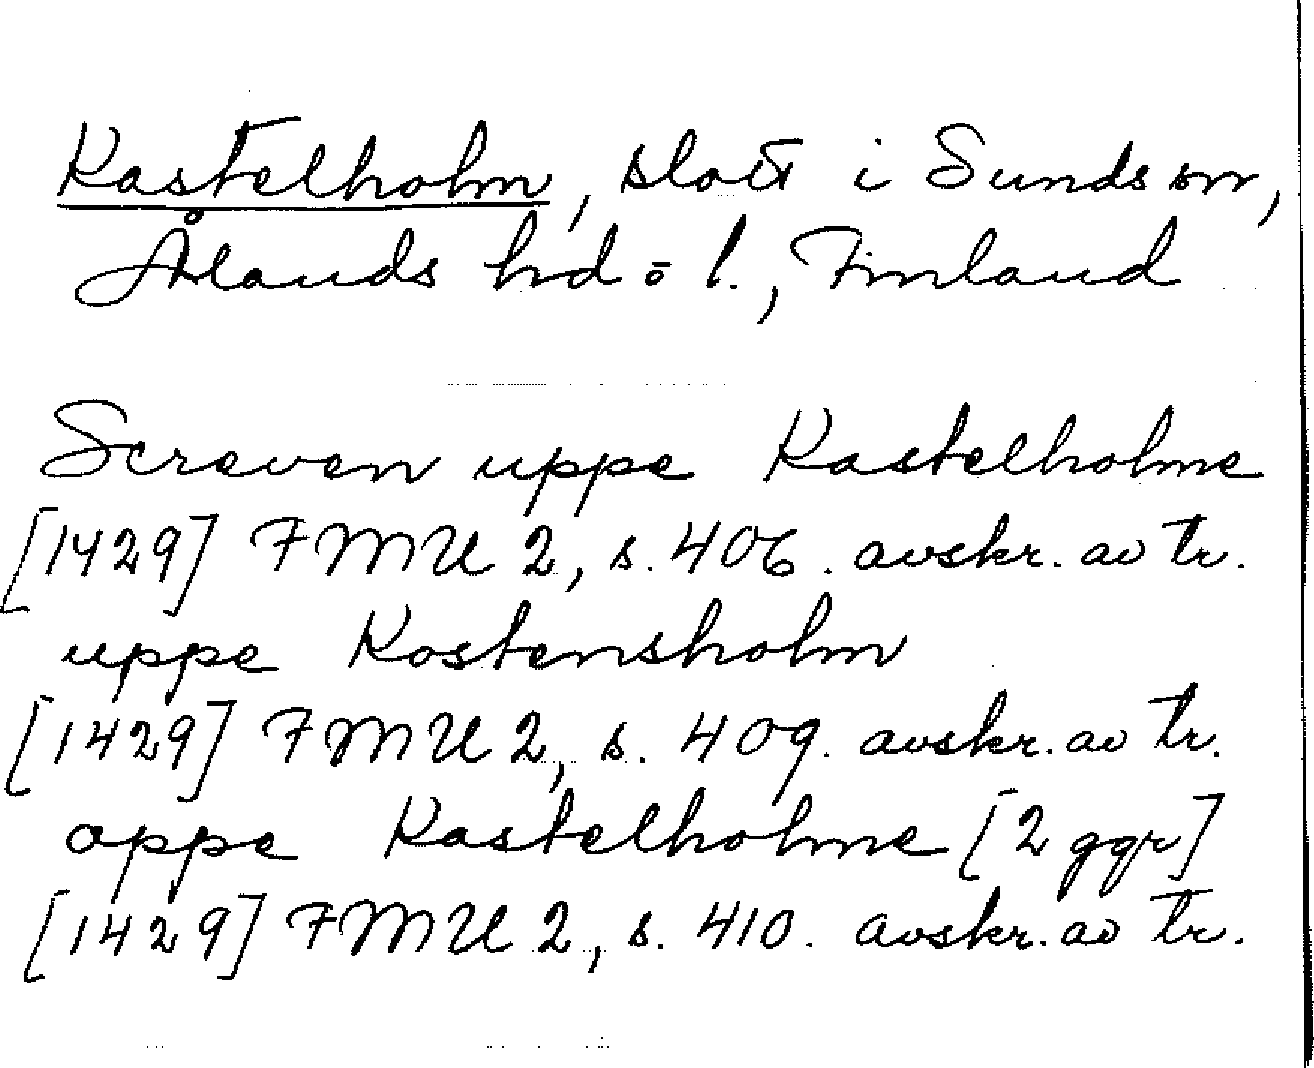 Kastelholm, slott i Sunds sn,
Ålands hd o l., Finland
Screven uppe Kastelholme
[1429] FMU 2, s. 406. avskr. av tr.
uppe Kostensholm
[1429] FMU 2, s. 409. avskr. av tr.
oppe Kastelholme [2 ggr]
[1429] FMU 2, s. 410. avskr. av tr.